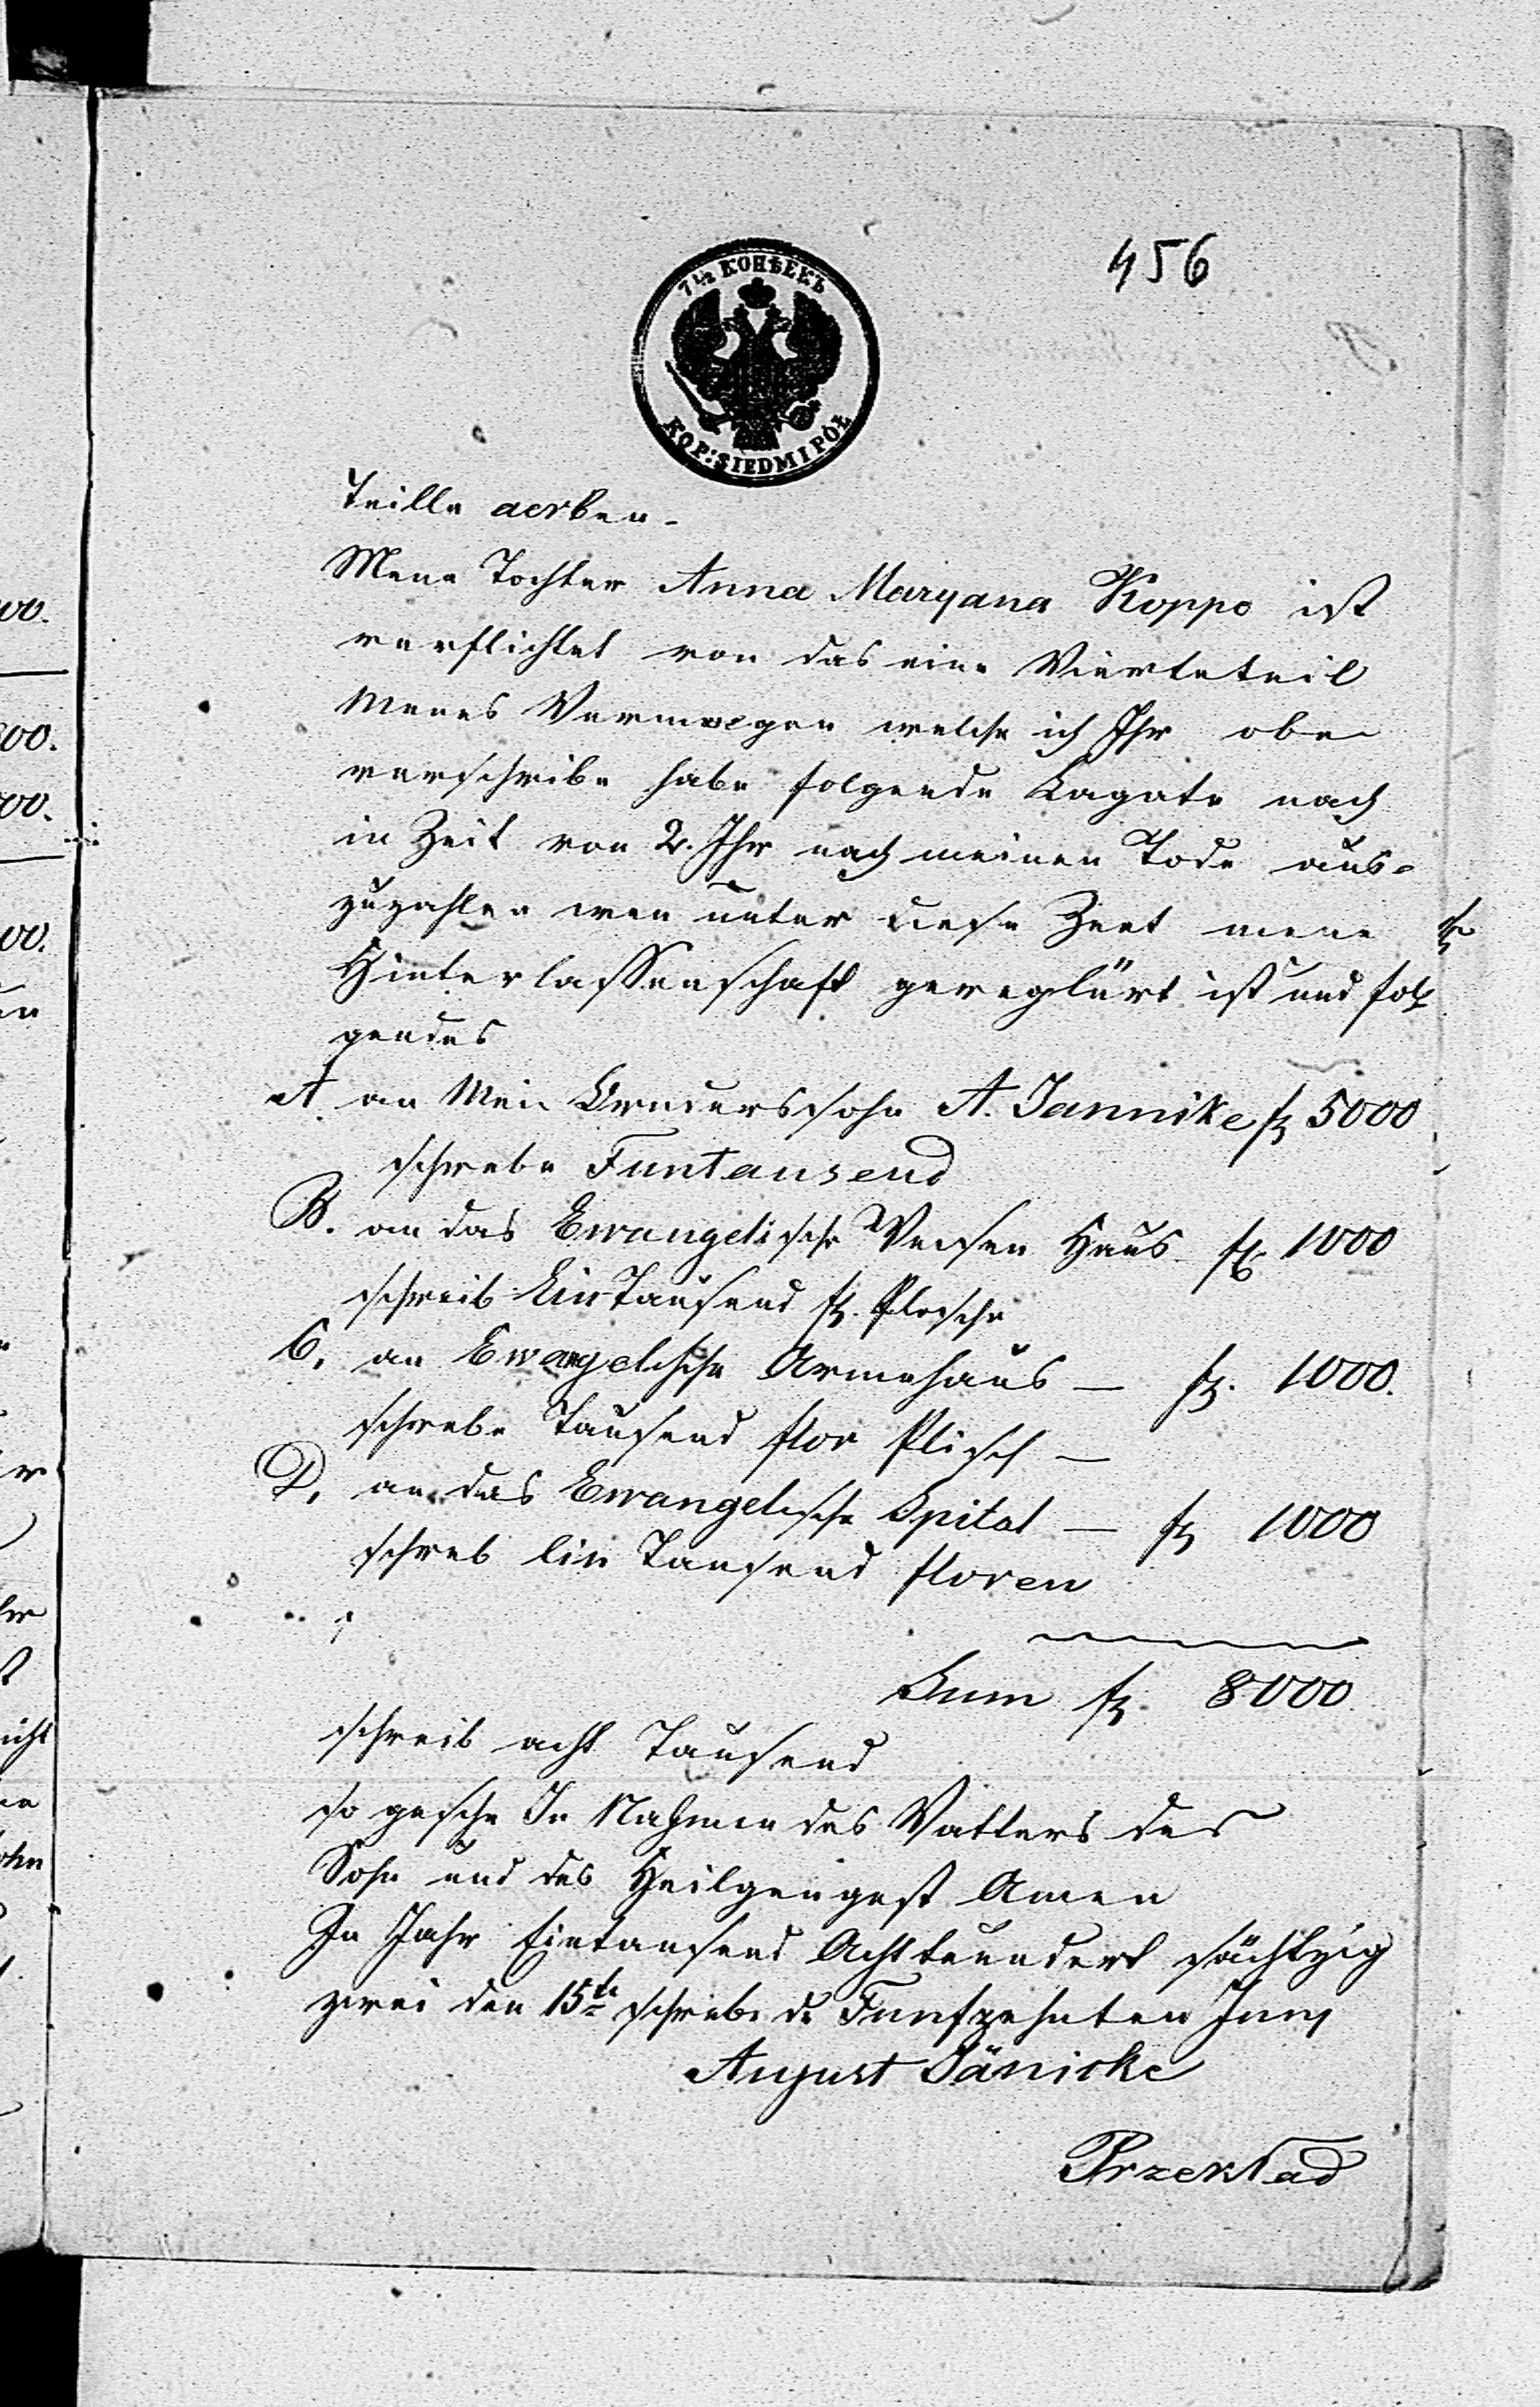 456
7½ КОПѢЕКЪ
KOP: SIEDM I PÓŁ
Teille aerben.
Mene Tochter Anna Maryana Koppe ist
verflichtet von das eine Vierteteil
Menes Vermoegen welche ich Ihr oben
verschribe habe folgende Lagate nach
in Zeit von 2. Jhr nach meinen Tode aus-
zuzahlen wen unter diese Zeet mene
Hinterlassenschaft gereglürt ist und fol
gendes
A. an Mein Bruderssohn A. Jannike f 5000
schrebe Funtausend
B. an das Ewangelische Weesen Haus f 1000
schreib Ein Tausend f. Plosche
C. an Ewangelische Armehaus — f. 1000.
schrebe Tausend flor Plisch —
D. an das Ewangelische Spital — f 1000
schreb Ein Tausend floren
Sum f. 8000
schreib acht Tausend
so gesche In Nahmen des Vatters des
Sohn und des Heilgengest Amen
In Jahr Eintausend Achthundert sächtzig
zwei den 15te schrebe de Funfzehnten Juny
August Jänicke
Przekład